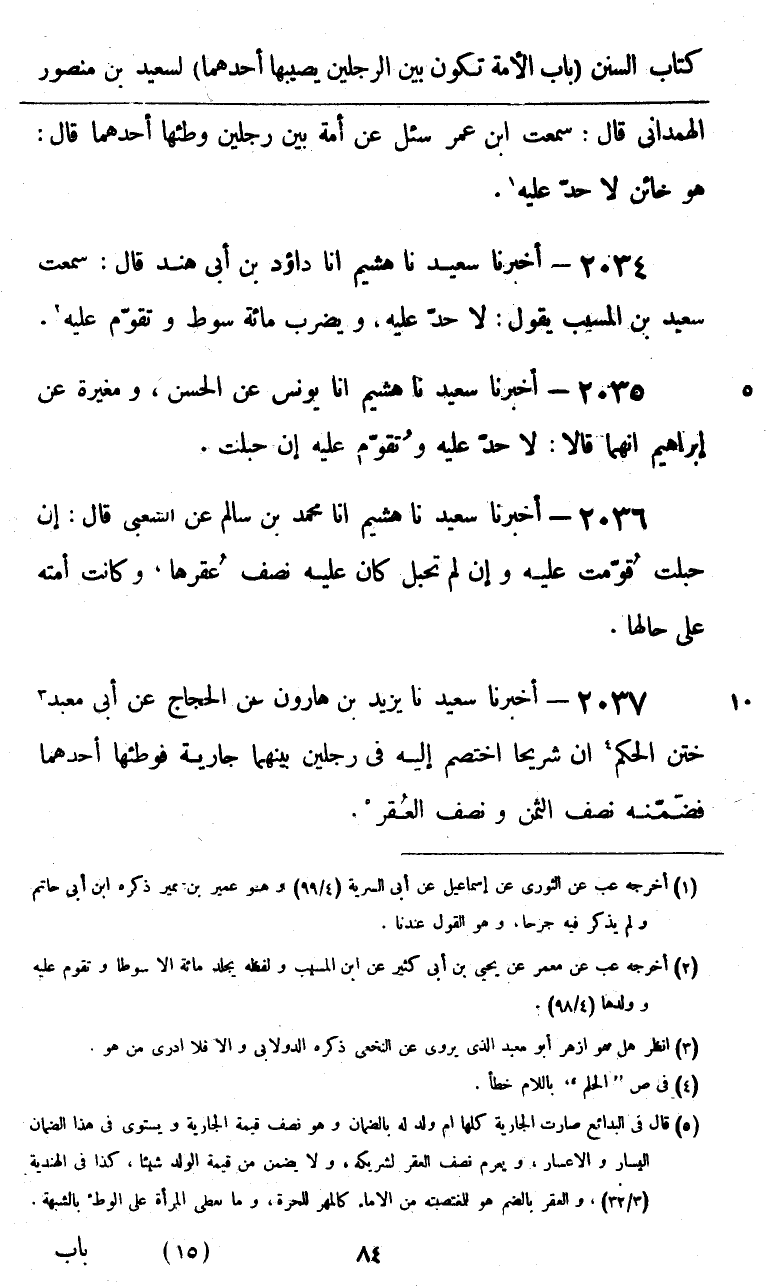 كتاب السنن (باب الأمة تكون بين الرجلين يصيبها أحدهما) لسعيد بن منصور
الهمدانى قال : سمعت ابن عمر سئل عن أمة بين رجلين وطئها أحدهما قال :
هو خائن لا حدّ عليه١ .
٢٠٣٤ – أخبرنا سعيد نا هشيم انا داؤد بن أبى هند قال : سمعت
سعيد بن المسيب يقول : لا حدّ عليه، و يضرب مائة سوط و تقوّم عليه٢ .
٢٠٣٥ – أخبرنا سعيد نا هشيم انا يونس عن الحسن ، و مغيرة عن ٥
إبراهيم انهما قالا : لا حدّ عليه و تُقوّم عليه إن حبلت .
٢٠٣٦ – أخبرنا سعيد نا هشيم انا محمد بن سالم عن الشعبى قال : إن
حبلت قُوّمت عليه و إن لم تحبل كان عليه نصف عُقرها ، و كانت أمته
على حالها .
٢٠٣٧ – أخبرنا سعيد نا يزيد بن هارون عن الحجاج عن أبى معبد٣ ١٠
ختن الحكم٤ ان شريحا اختصم إليه فى رجلين بينهما جارية فوطئها أحدهما
فضمّنه نصف الثمن و نصف العُقر٥ .
(١) أخرجه عب عن الثورى عن إسماعيل عن أبى السرية (٩٩/٤) و هو عمير بن نمير ذكره ابن أبى حاتم
و لم يذكر فيه جرحا، و هو القول عندنا .
(٢) أخرجه عب عن معمر عن يحيى بن أبى كثير عن ابن المسيب و لفظه يجلد مائة الا سوطا و تقوم عليه
و ولدها (٩٨/٤) .
(٣) انظر هل هو ازهر أبو معبد الذى يروى عن النخعى ذكره الدولابى و الا فلا ادرى من هو .
(٤) فى ص "الحلم" باللام خطأ .
(٥) قال فى البدائع صارت الجارية كلها ام ولد له بالضمان و هو نصف قيمة الجارية و يستوى فى هذا الضمان
اليسار و الاعسار ، و يغرم نصف العقر لشريكه، و لا يضمن من قيمة الولد شيئا ، كذا فى الهندية
(٣٢/٣) ، و العقر بالضم هو للمغتصبة من الاماء كالمهر للحرة، و ما تعطى المرأة على الوطئ بالشبهة .
٨٤ (١٥) باب